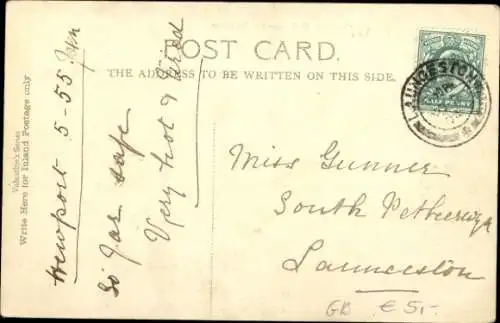 POST CARD.
THE ADDRESS TO BE WRITTEN ON THIS SIDE.
Valentine's Series
Write Here for Inland Postage only
Newport 5-55 pm
So far safe
Very hot & tired
LAUNCESTON
HALF PENNY
Miss Gunner
South Petherwyn
Launceston
GB € 5,-